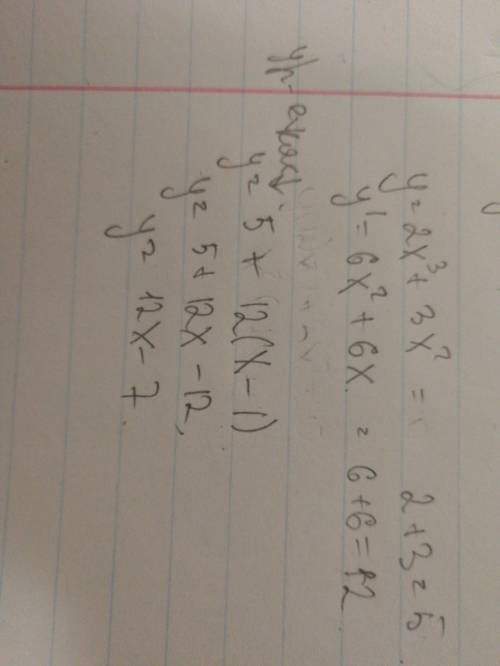 y = 2x³ + 3x² = 2 + 3 = 5
y' = 6x² + 6x = 6 + 6 = 12
ур-е
y = 5 + 12(x - 1)
y = 5 + 12x - 12
y = 12x - 7